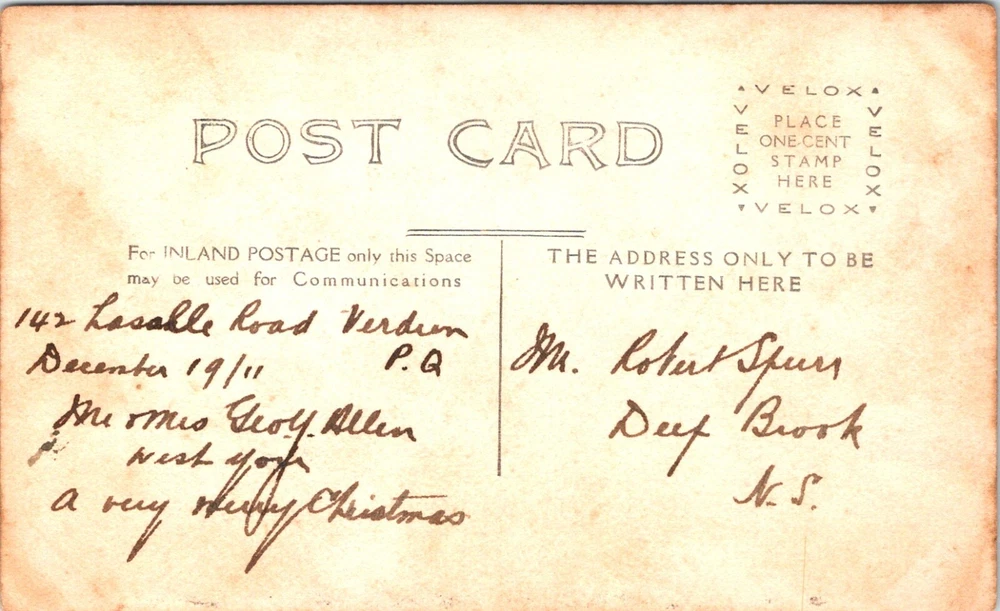 POST CARD
VELOX
VELOX
PLACE
ONE-CENT
STAMP
HERE
VELOX
VELOX
For INLAND POSTAGE only this Space
may be used for Communications
THE ADDRESS ONLY TO BE
WRITTEN HERE
142 Lasalle Road Verdun
December 19/11 P.Q
Mr & Mrs Geo. Y. Allen
wish you
a very merry Christmas
Mr. Robert Spurr
Deep Brook
N.S.